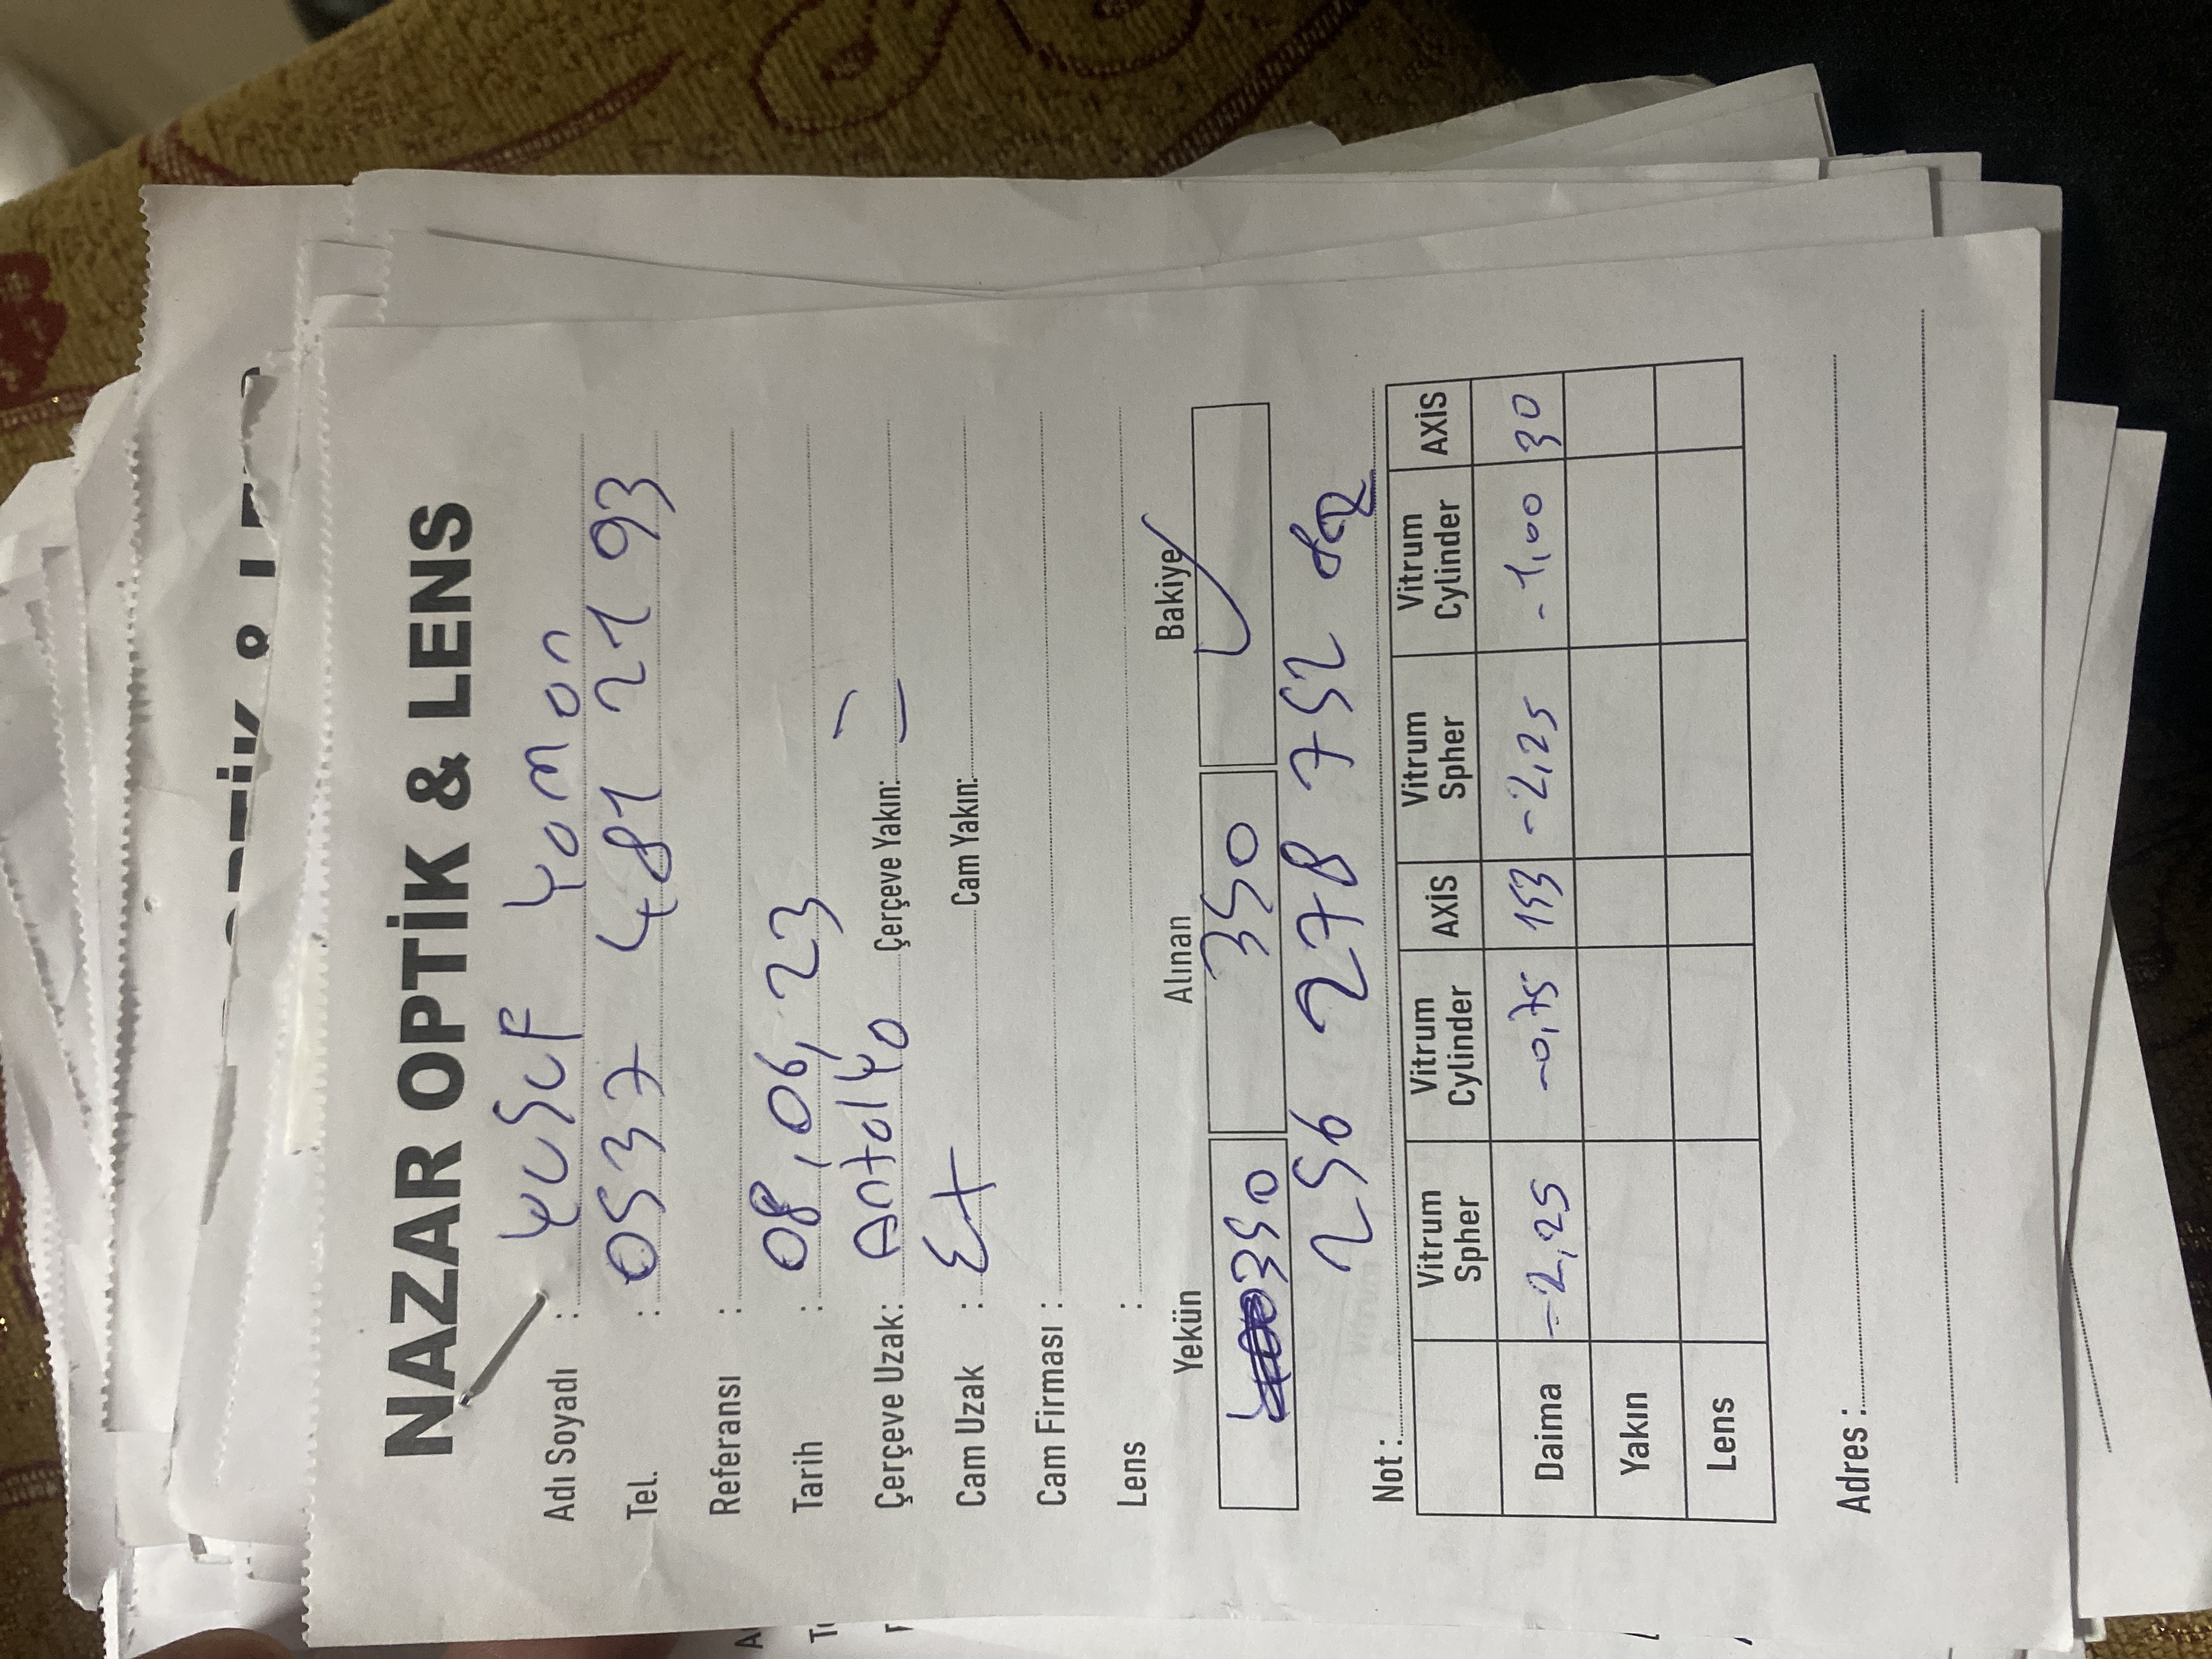 OPTİK & LENS
NAZAR OPTİK & LENS
Adı Soyadı : Yusuf Yaman
Tel. : 0537 481 21 93
Referansı :
Tarih : 08,06,23
Çerçeve Uzak: Antalya Çerçeve Yakın:
Cam Uzak : Ex Cam Yakın:
Cam Firması :
Lens :
Yekün Alınan Bakiye
350 350 ✓
256 278 752
Not :
Vitrum Spher Vitrum Cylinder AXİS Vitrum Spher Vitrum Cylinder AXİS
Daima -2,25 -0,75 153 -2,25 -1,00 30
Yakın
Lens
Adres :